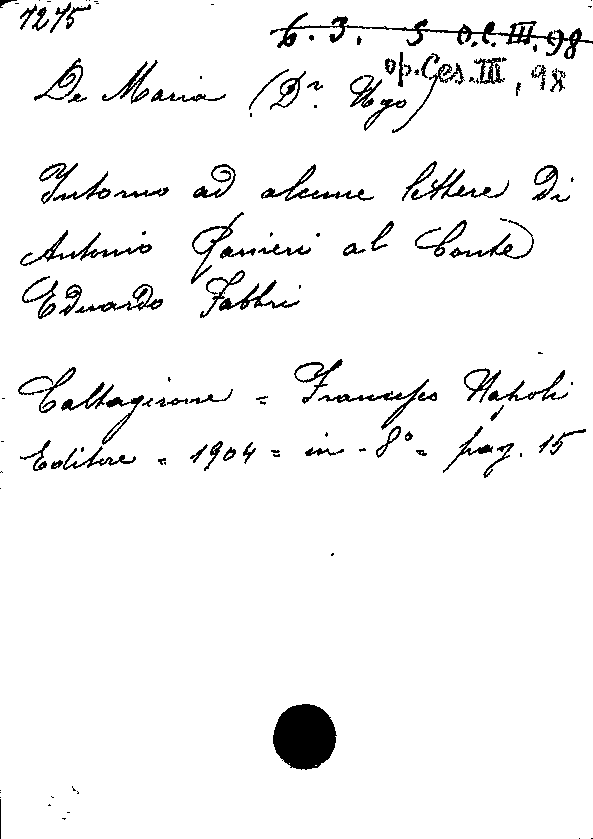 7275
6. 3. 5 O.C. III. 98
op. Ces. III, 98
De Maria (Dr. Ugo)
Intorno ad alcune lettere di
Antonio Ranieri al Conte
Eduardo Fabbri
Caltagirone = Francesco Napoli
Editore = 1904 = in-8° = pag. 15